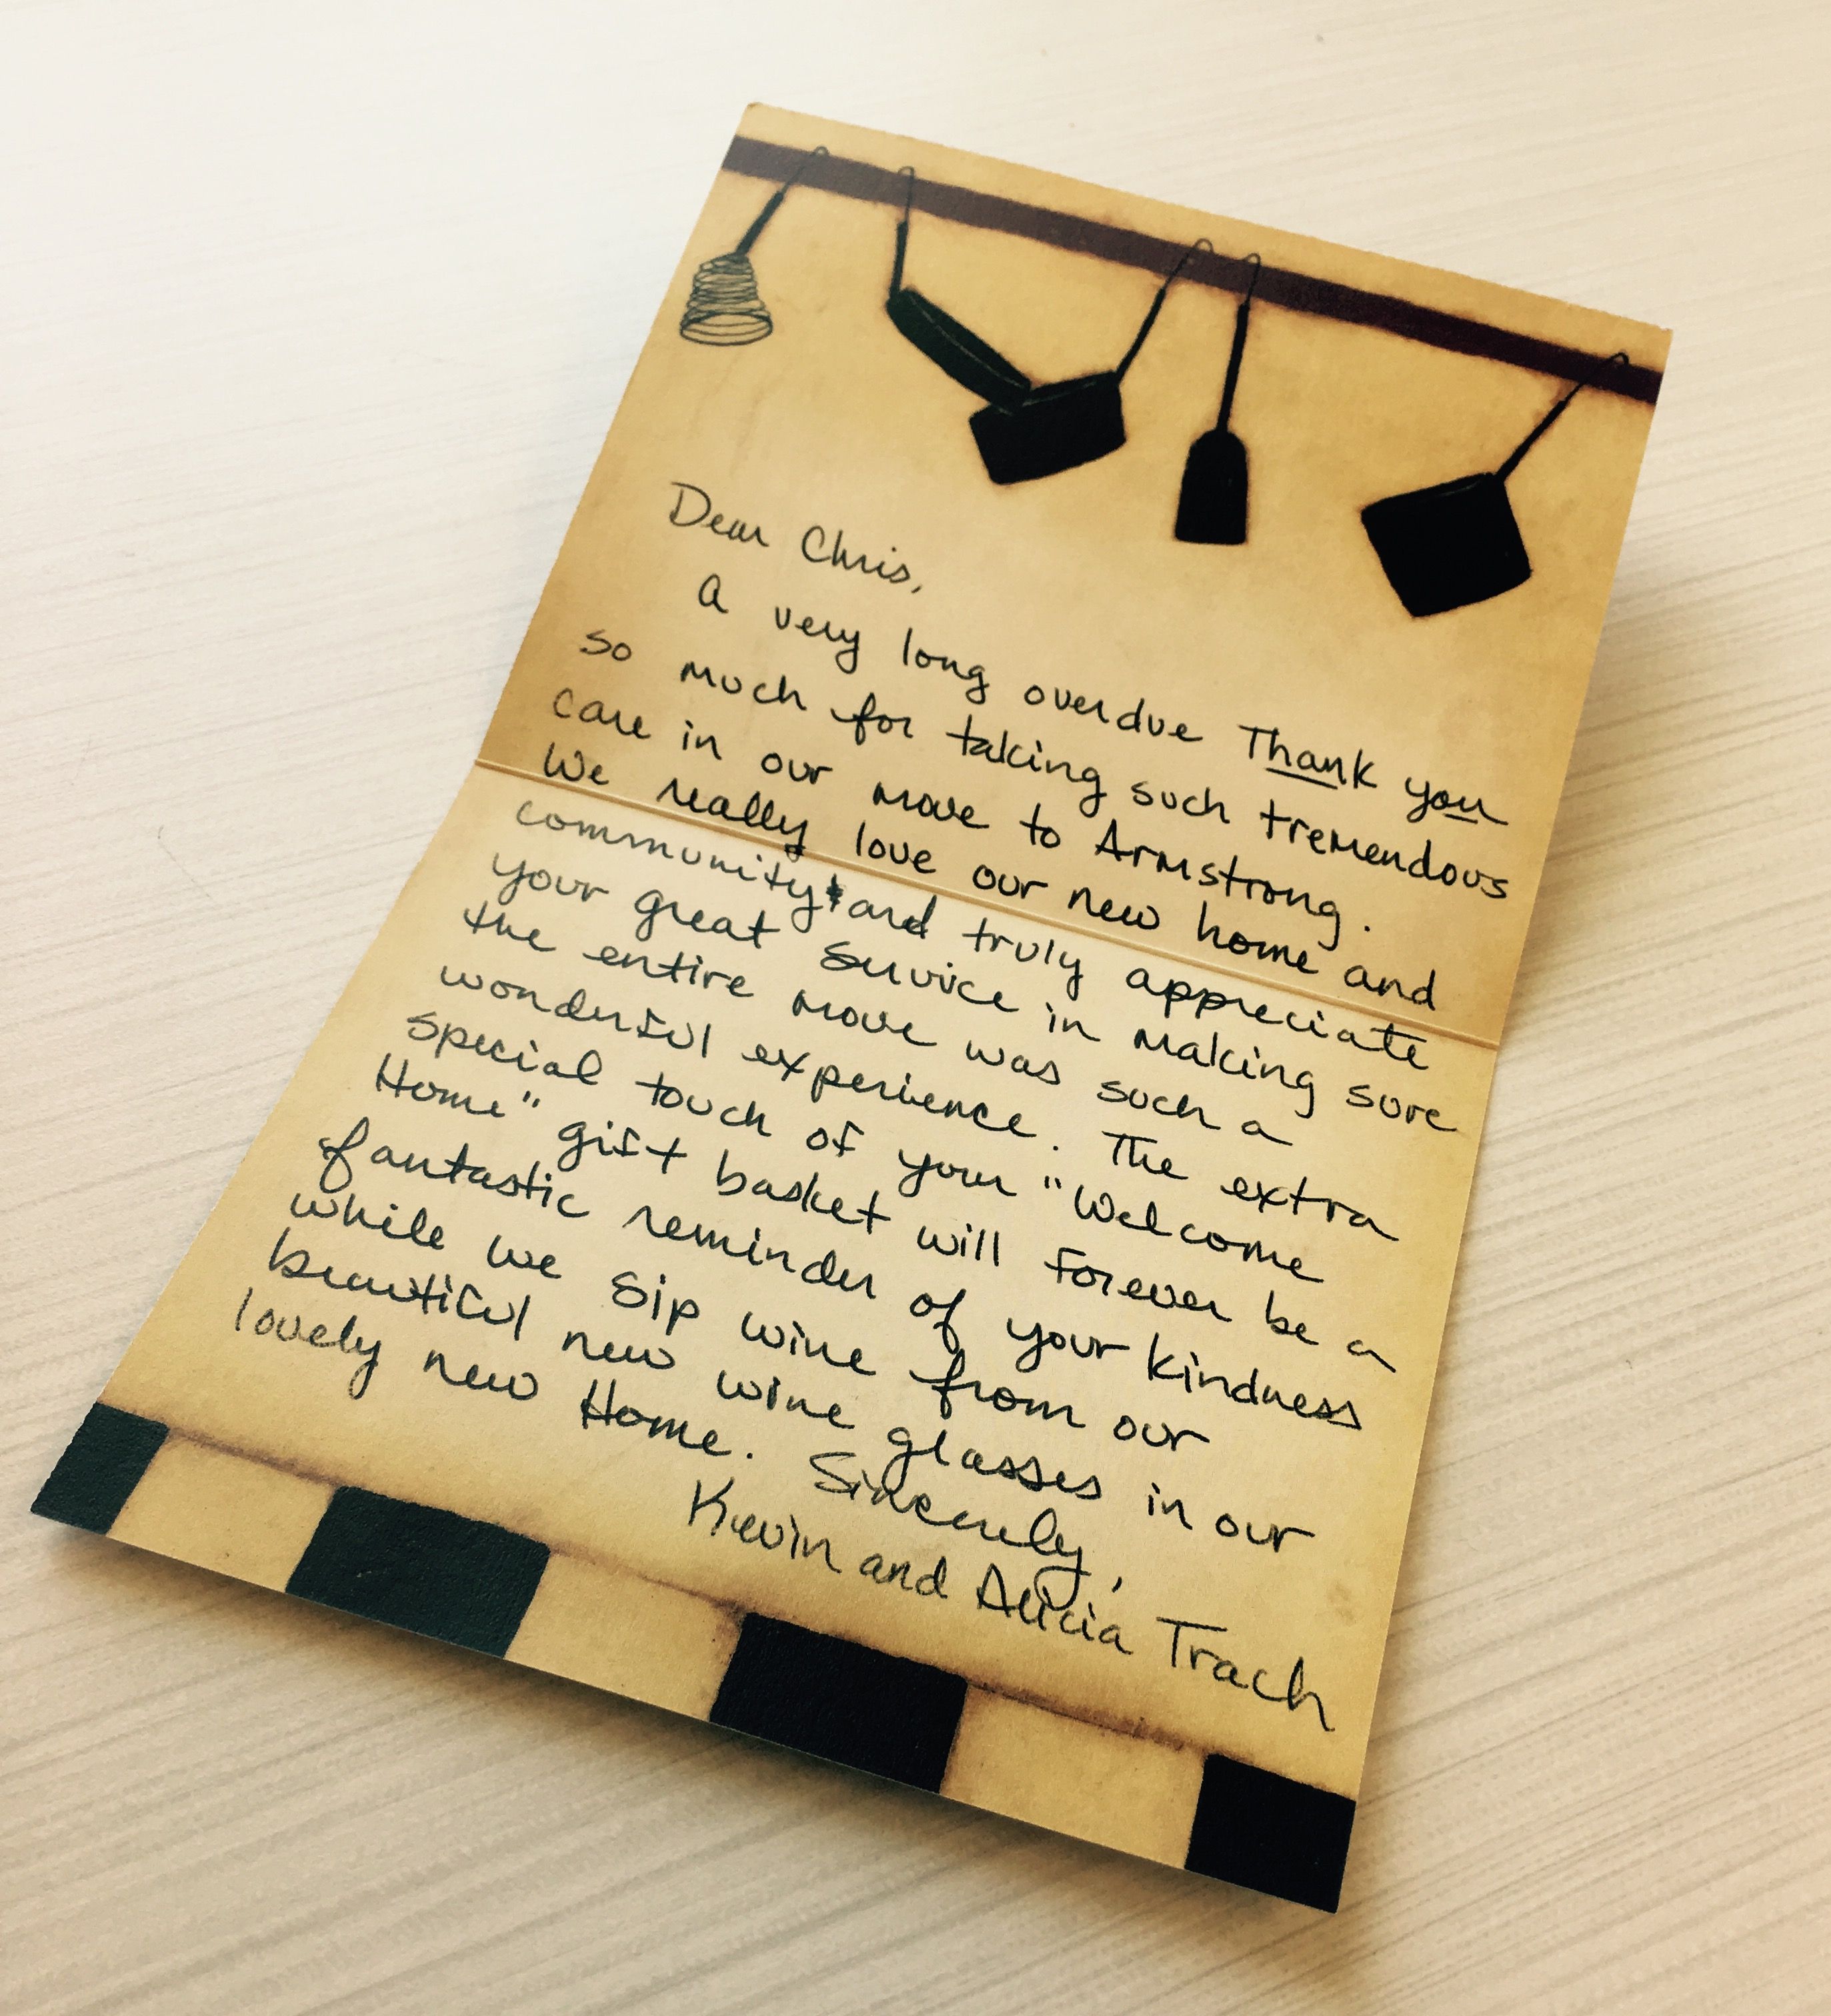 Dear Chris,
A very long overdue Thank you
so much for taking such tremendous
care in our move to Armstrong.
We really love our new home and
community and truly appreciate
your great service in making sure
the entire move was such a
wonderful experience. The extra
special touch of your "Welcome
Home" gift basket will forever be a
fantastic reminder of your kindness
while we sip wine from our
beautiful new wine glasses in our
lovely new Home. Sincerely,
Kevin and Alicia Trach